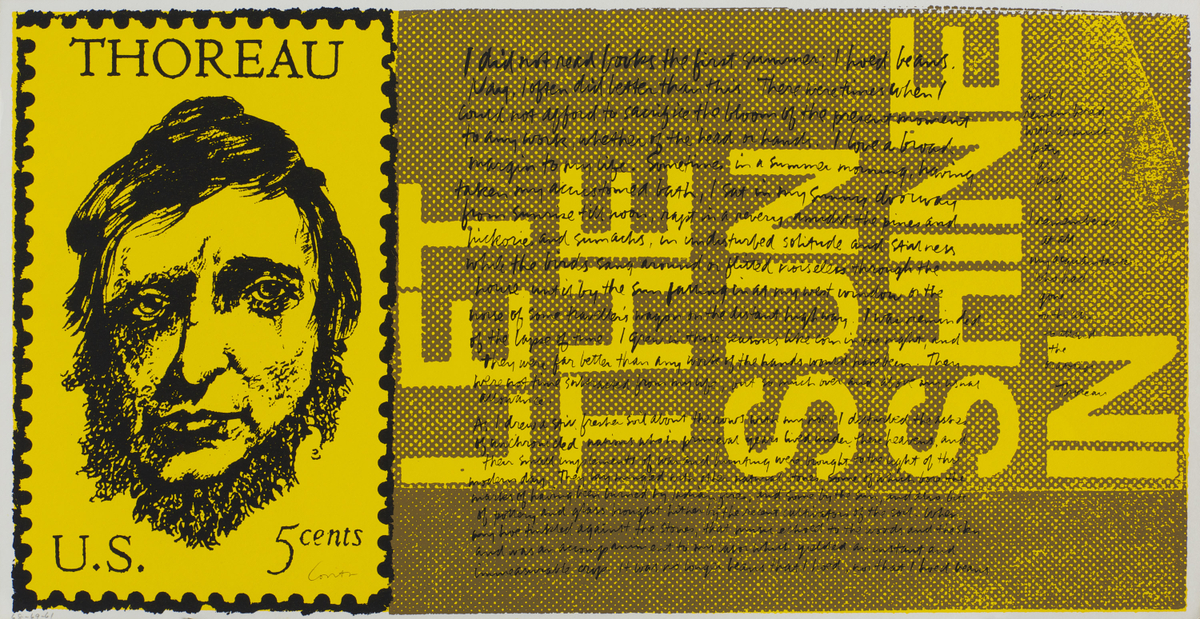 THOREAU
U.S.
5 cents
Corita
LET
THE
SUN
SHINE
IN
I did not read books the first summer; I hoed beans.
Nay, I often did better than this. There were times when I
could not afford to sacrifice the bloom of the present moment
to any work, whether of the head or hands. I love a broad
margin to my life. Sometimes, in a summer morning, having
taken my accustomed bath, I sat in my sunny doorway
from sunrise till noon, rapt in a revery, amidst the pines and
hickories and sumachs, in undisturbed solitude and stillness
while the birds sang around or flitted noiseless through the
house, until by the sun falling in at my west window, or the
noise of some travellers wagon on the distant highway, I was reminded
of the lapse of time. I grew in those seasons like corn in the night, and
they were far better than any work of the hands would have been. They
were not time subtracted from my life, but so much over and above my usual
allowance.
As I drew a still fresher soil about the rows with my hoe, I disturbed the ashes
of unchronicled nations who in primeval years lived under these heavens, and
their small implements of war and hunting were brought to the light of this
modern day. They lay mingled with other natural stones, some of which bore the
marks of having been burned by indian fires, and some by the sun, and also bits
of pottery and glass brought hither by the recent cultivators of the soil. When
my hoe tinkled against the stones, that music echoed to the woods and the sky
and was an accompaniment to my labor which yielded an instant and
immeasurable crop. It was no longer beans that I hoed, nor that I hoed beans
remembered
it all
my
gone
the
Thoreau